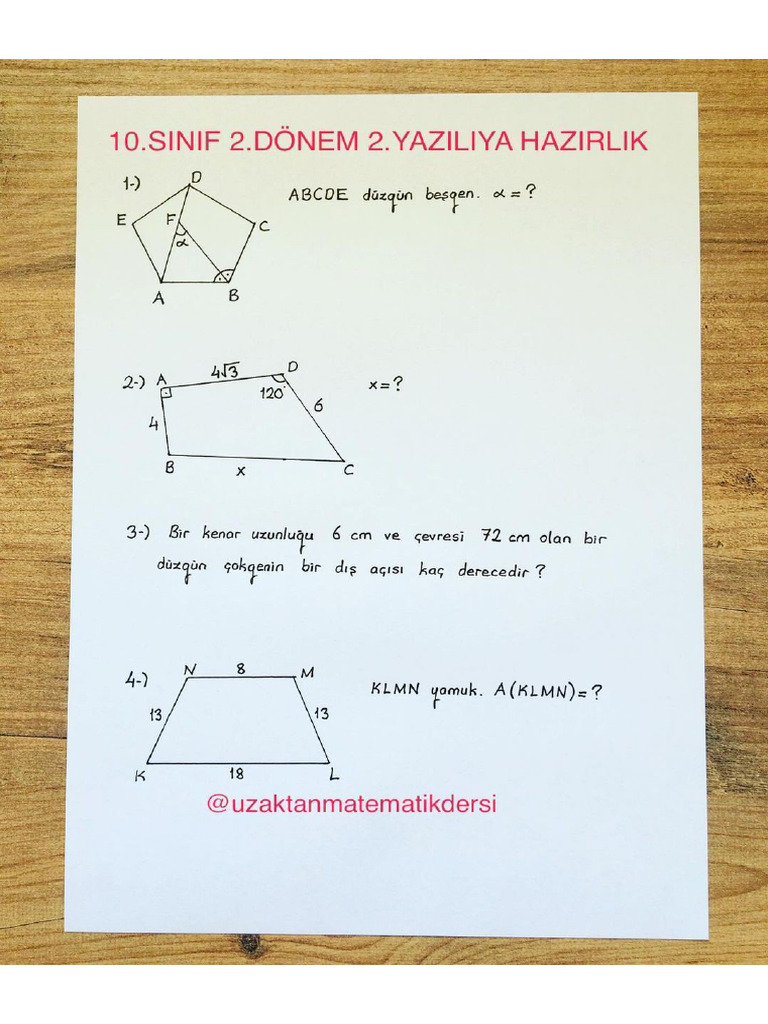 10.SINIF 2.DÖNEM 2.YAZILIYA HAZIRLIK
1-)
D
E
F
C
α
A
B
ABCDE düzgün beşgen. α = ?
2-)
A
4√3
D
120°
6
4
B
x
C
x = ?
3-) Bir kenar uzunluğu 6 cm ve çevresi 72 cm olan bir
düzgün çokgenin bir dış açısı kaç derecedir ?
4-)
N
8
M
13
13
K
18
L
KLMN yamuk. A(KLMN) = ?
@uzaktanmatematikdersi